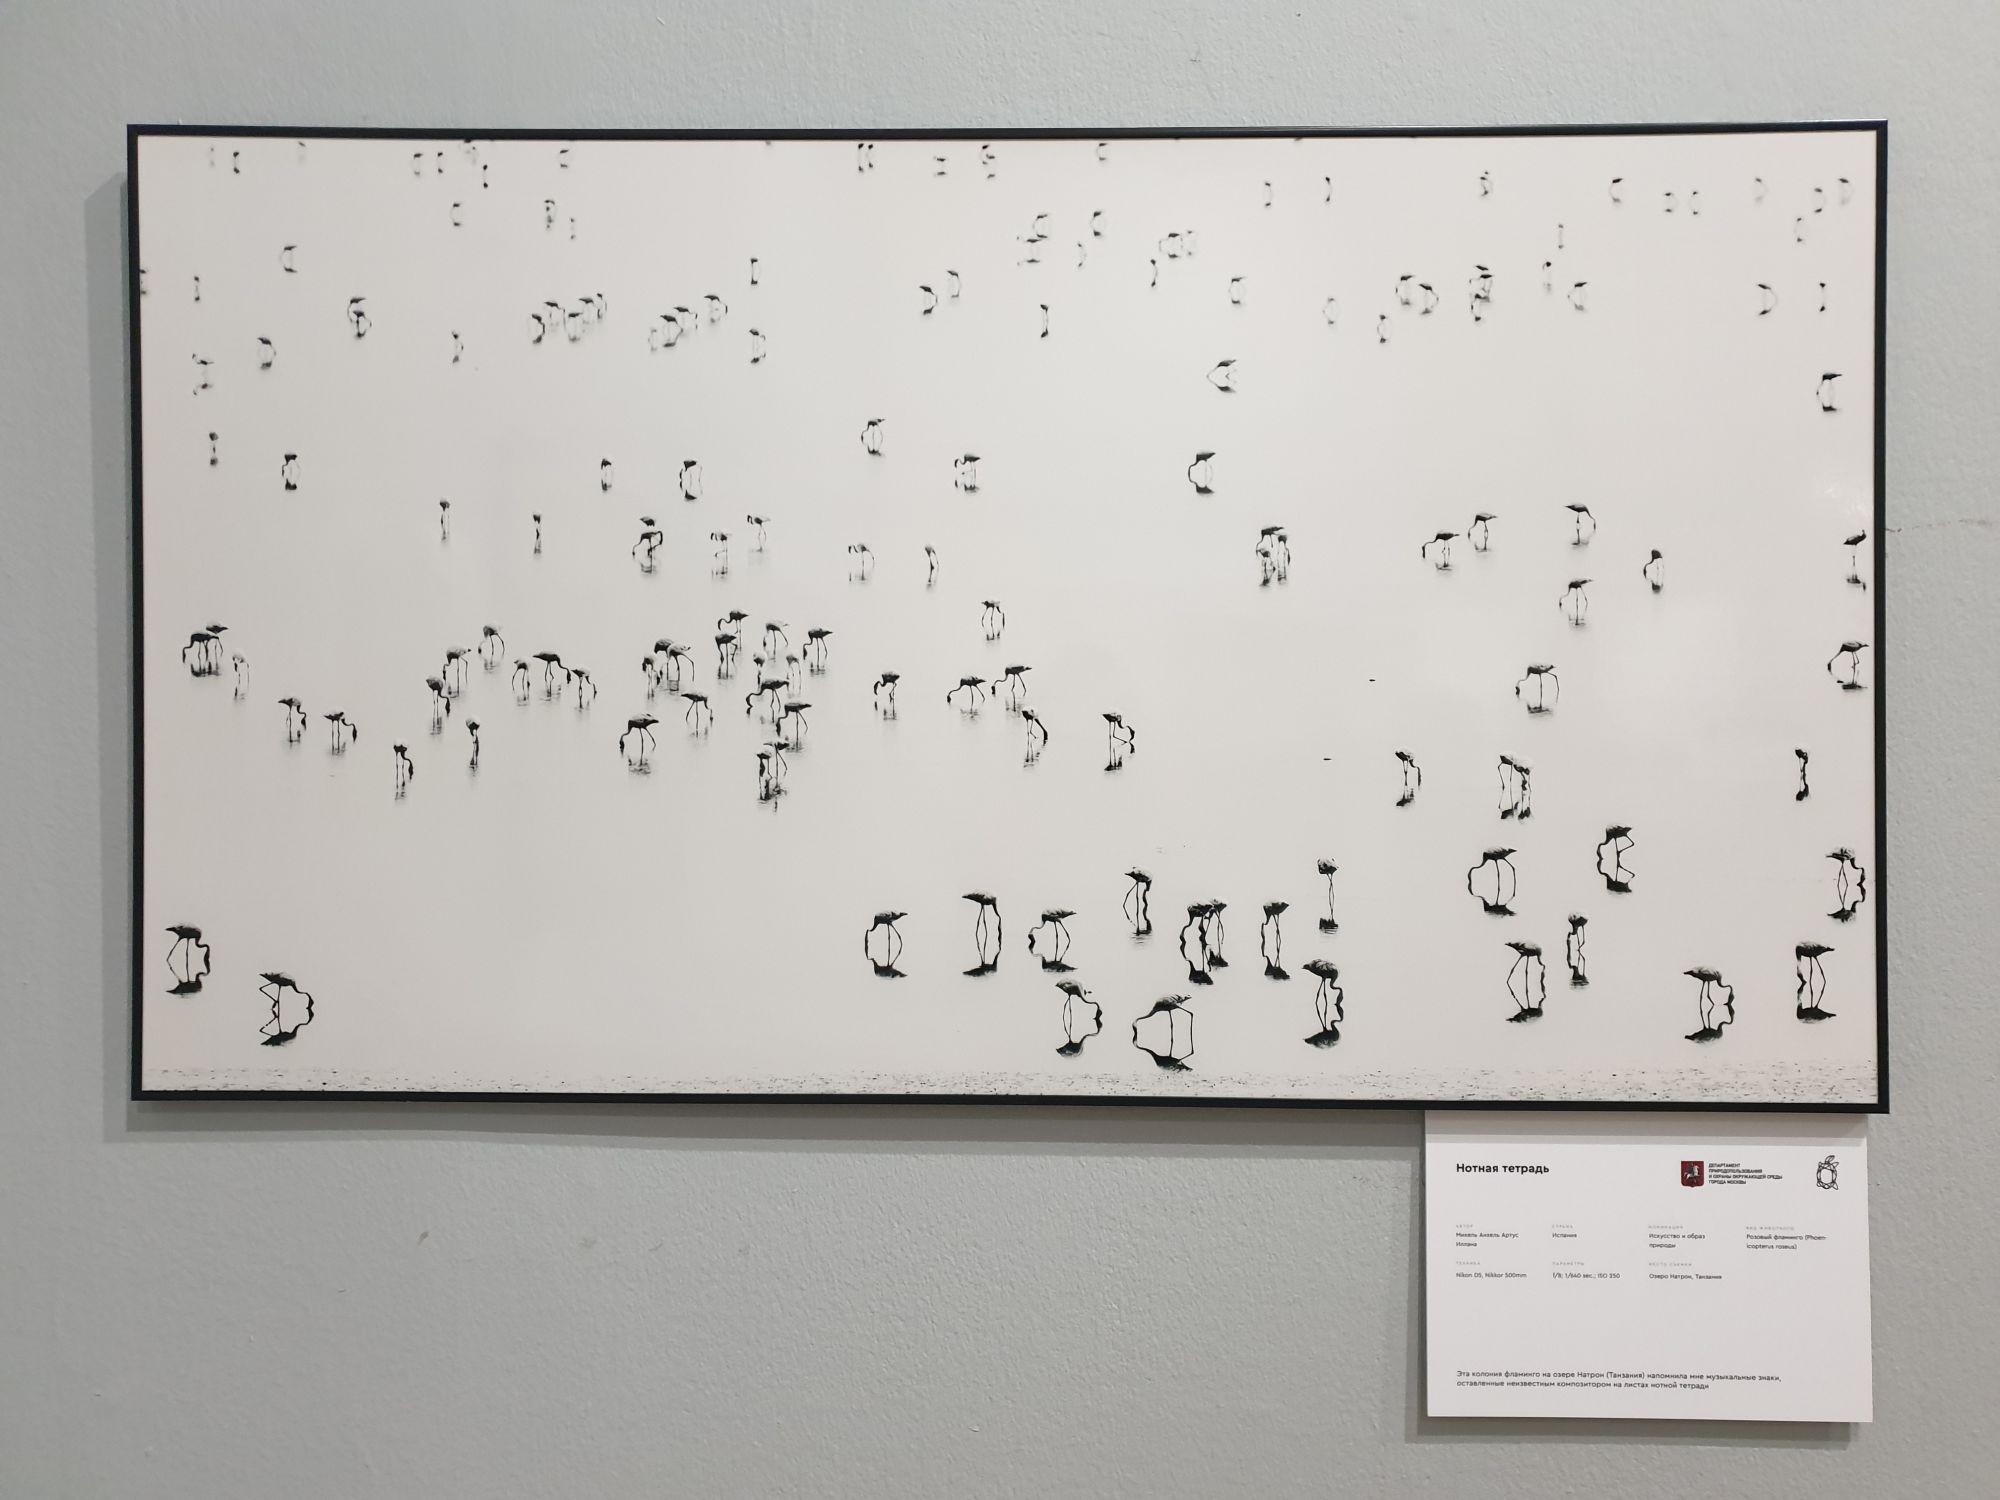 Нотная тетрадь
ДЕПАРТАМЕНТ
ПРИРОДОПОЛЬЗОВАНИЯ
И ОХРАНЫ ОКРУЖАЮЩЕЙ СРЕДЫ
ГОРОДА МОСКВЫ
АВТОР
Микель Анхель Артус
Иллана
СТРАНА
Испания
НОМИНАЦИЯ
Искусство и образ
природы
ВИД ЖИВОТНОГО
Розовый фламинго (Phoen-
icopterus roseus)
ТЕХНИКА
Nikon D5, Nikkor 500mm
ПАРАМЕТРЫ
f/8; 1/640 sec.; ISO 250
МЕСТО СЪЕМКИ
Озеро Натрон, Танзания
Эта колония фламинго на озере Натрон (Танзания) напомнила мне музыкальные знаки,
оставленные неизвестным композитором на листах нотной тетради